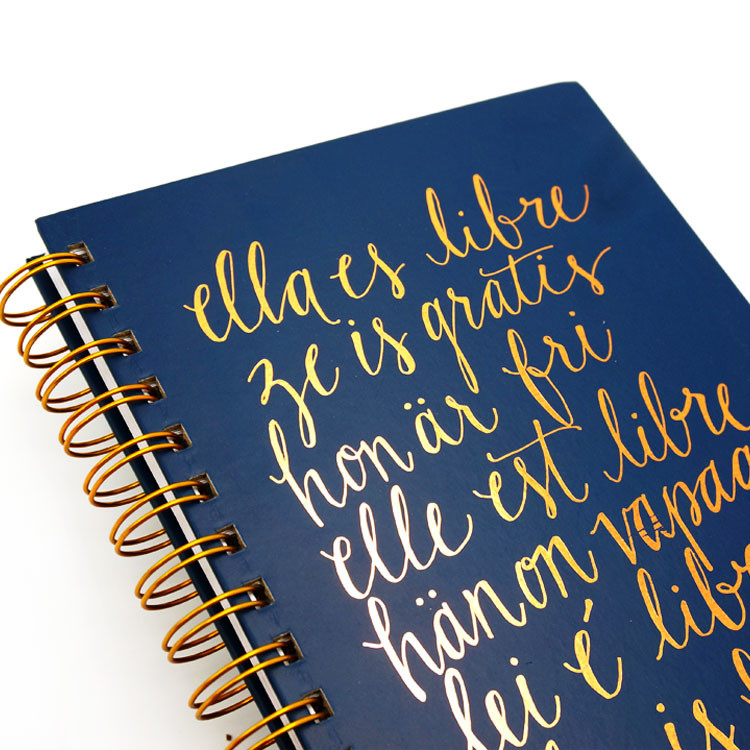 ella es libre
ze is gratis
hon är fri
elle est libre
hän on vapaa
lei é libr
is